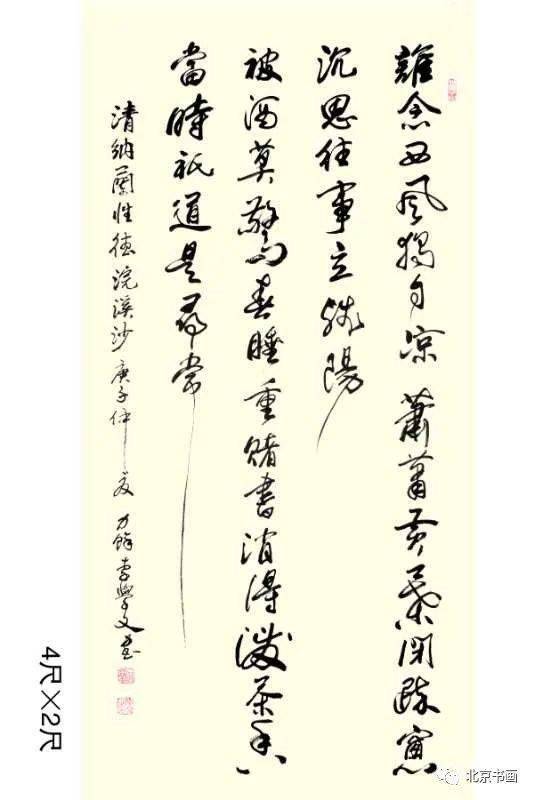 誰念西風獨自凉 蕭蕭黄葉閉疏窻
沉思往事立殘陽
被酒莫驚春睡重 賭書消得潑茶香
當時祇道是尋常
清納蘭性德浣溪沙 庚子仲夏 李 文書
4尺×2尺
北京书画